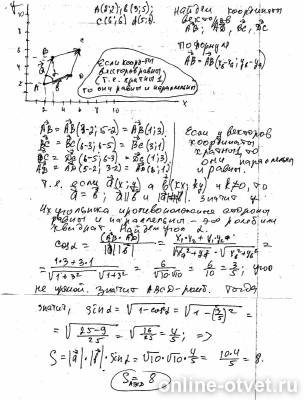 A(2;2); B(3;5);
C(6;6) D(5;3)
Найдем координаты
векторов
AB; AD; BC; DC
По формуле
AB = AB(x₂-x₁; y₂-y₁)
Если коорд-ты
векторов равны
(т.е. кратны 1)
то они равны и параллельны
AB = AB(3-2; 5-2) = AB(1; 3)
BC = BC(6-3; 6-5) = BC(3; 1)
DC = DC(6-5; 6-3) = DC(1; 3)
AD = AD(5-2; 3-2) = AD(3; 1)
Если у векторов
координаты
кратны, то
они параллельны
и равны.
Т.е. если a(x; y) а b(kx; ky) и k≠0, то
a = b; a∥b и значит у
4х угольника противоположные стороны
равны и параллельны - это ромб или
квадрат. Найдем угол α.
cosα = (AB · AD) / |a| |b| =
= 1·3+3·1 / √1+3² · √1+3² = 6 / √10·√10 = 6/10 = 3/5; угол
не прямой. Значит ABCD - ромб. Тогда
значит, sinα = √1-cos²α = √1-(3/5)² =
= √25-9/25 = √16/25 = 4/5; =>
S = |a| · |b| · sinα = √10·√10·4/5 = 10·4/5 = 8.
S = 8
online-otvet.ru